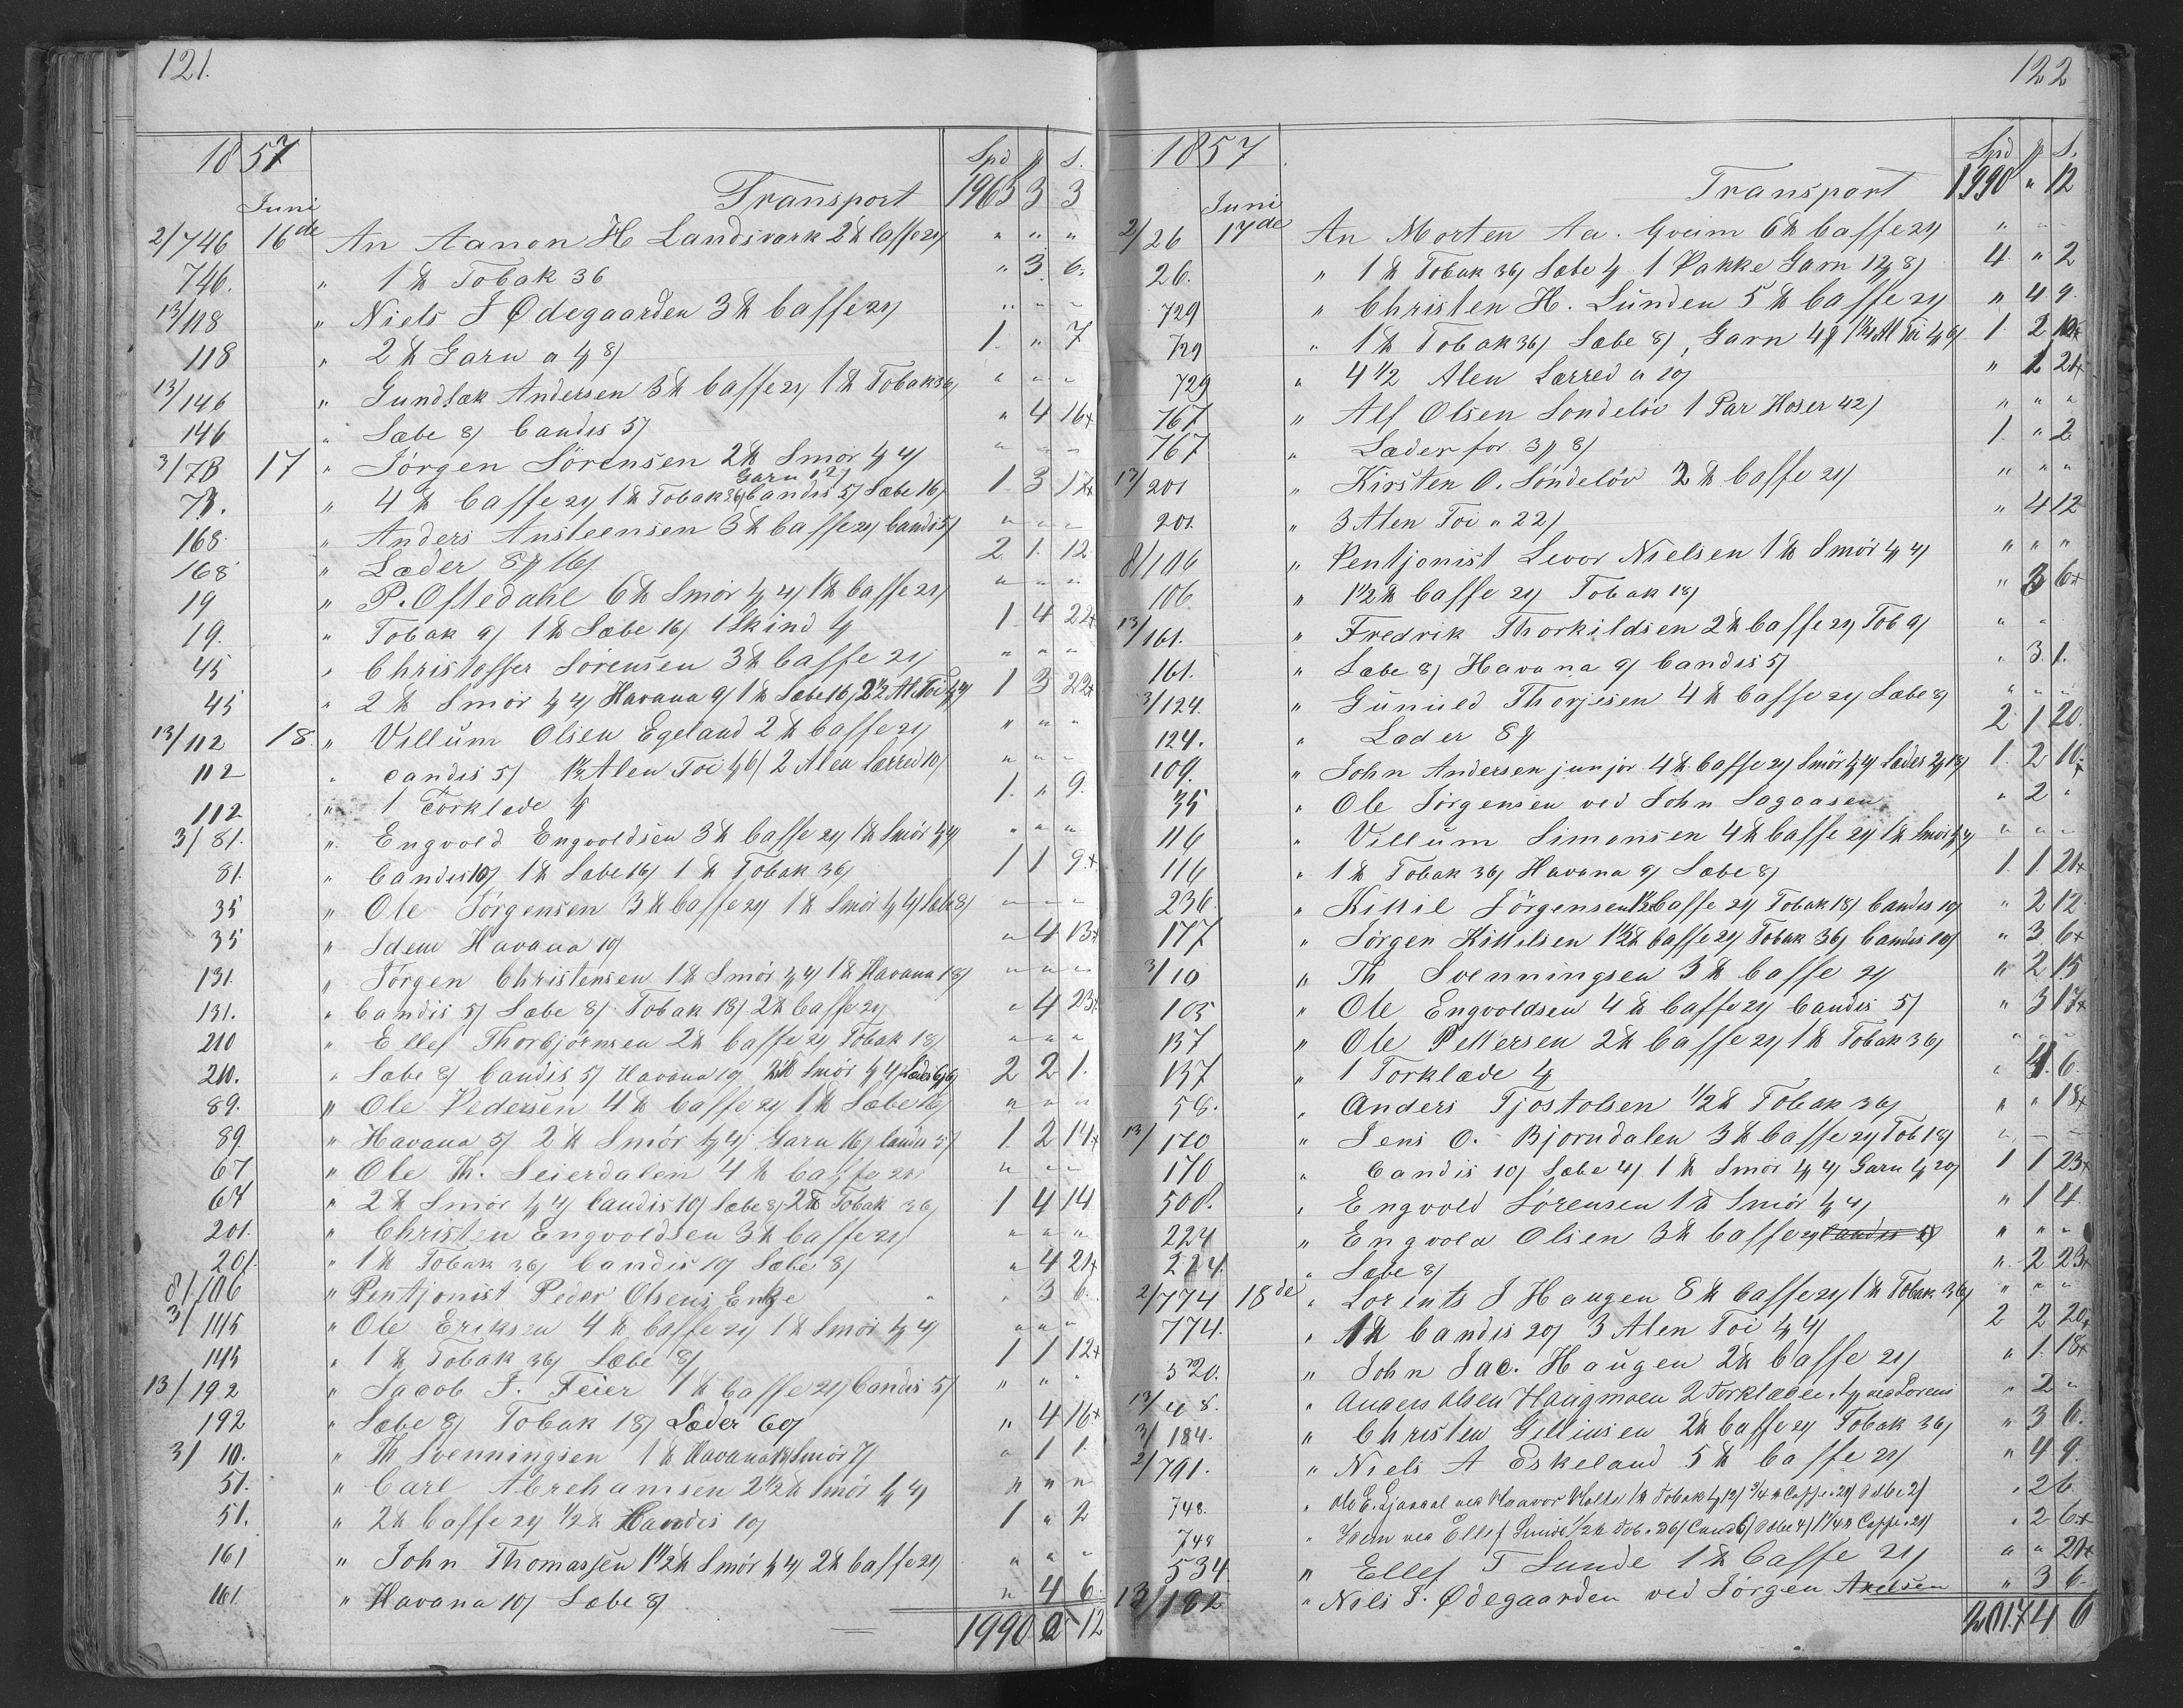 121.
1857
Spd # S.
Transport 1965 3 3
Juni
2/746 16de An Aanon H Landsverk 2 ℔ Caffe 21/ " " "
746. " 1 ℔ Tobak 36 " 3 6.
13/118 " Niels J Ødegaarden 3 ℔ Caffe 21/ " " "
118 " 2 ℔ Garn a 4# 8/ 1. " 7
13/146 " Gundlæk Andersen 3 ℔ Caffe 21/ 1 ℔ Tobak 36/ " " "
146 " Sæbe 8/ Candis 5/ " 4 16+
3/78 17 " Jörgen Sörensen 2 ℔ Smör 1# 4/ " " "
Garn 12/
78. " 4 ℔ Caffe 21/ 1 ℔ Tobak 36/ Candis 5/ Sæbe 16/ 1 3 17+
168. " Anders Ansteensen 3 ℔ Caffe 21/ Candis 5/ " " "
168 " Læder 8# 16/ 2 1 12
19 " P. Oftedahl 6 ℔ Smör 1# 4/ 1 ℔ Caffe 21/ " " "
19. " Tobak 9/ 1 ℔ Sæbe 16/ 1 Skind 1# 1 4 22+
45 " Christoffer Sörensen 3 ℔ Caffe 21/ " " "
45 " 2 ℔ Smör 1# 4/ Havana 9/ 1 ℔ Sæbe 16/ 2 1/2 Al. Toi 1# 4/ 1 3 22+
13/112 18. " Villum Olsen Egeland 2 ℔ Caffe 21/ " " "
112 " Candis 5/ 1 1/2 Alen Toi 1# 6/ 2 Alen Lærred 10/ " " "
112 " 1 Törklæde 1# 1. " 9.
3/81. " Engvold Engvoldsen 3 ℔ Caffe 21/ 1 ℔ Smör 1# 4/ " " "
81. " Candis 10/ 1 ℔ Sæbe 16/ 1 ℔ Tobak 36/ 1 1 9+
35 " Ole Jörgensen 3 ℔ Caffe 21/ 1 ℔ Smör 1# 4/ Sæbe 8/ " " "
35 " Idem Havana 10/ " 4 13+
131. " Jörgen Christensen 1 ℔ Smör 1# 4/ 1 ℔ Havana 18/ " " "
131. " Candis 5/ Sæbe 8/ Tobak 18/ 2 ℔ Caffe 21/ " 4 23+
210 " Ellef Thorbjörnsen 2 ℔ Caffe 21/ Tobak 18/ " " "
210. " Sæbe 8/ Candis 5/ Havana 10/ 2 ℔ Smör 1# 4/ Læder 6# 6/ 2 2 1.
89. " Ole Pedersen 4 ℔ Caffe 21/ 1 ℔ Sæbe 16/ " " "
89 " Havana 5/ 2 ℔ Smör 1# 4/ Garn 16/ Candis 5/ 1. 2 14+
67 " Ole Th. Seierdalen 4 ℔ Caffe 21/ " " "
67 " 2 ℔ Smör 1# 4/ Candis 10/ Sæbe 8/ 2 ℔ Tobak 36/ 1 4 14
201. " Christen Engvoldsen 3 ℔ Caffe 21/ " " "
201. " 1 ℔ Tobak 36/ Candis 10/ Sæbe 8/ " 4 21+
8/106 " Pentjonist Peder Olsens Enke " 3 6.
3/145 " Ole Eriksen 4 ℔ Caffe 21/ 1 ℔ Smör 1# 4/ " " "
145 " 1 ℔ Tobak 36/ Sæbe 8/ 1 1 12+
13/192 " Jacob J. Feier 1 ℔ Caffe 21/ Candis 5/ " " "
192 " Sæbe 8/ Tobak 18/ Læder 60/ " 4 16+
3/10. " Th Svenningsen 1 ℔ Havana 18/ Smör 7/ " 1 1.
51. " Carl Abrehamsen 2 1/2 ℔ Smör 1# 4/ " " "
51. " 2 ℔ Caffe 21/ 1/2 ℔ Candis 10/ 1 " 2
161 " John Thomassen 1 1/2 ℔ Smör 1# 4/ 2 ℔ Caffe 21/ " " "
161. " Havana 10/ Sæbe 8/ " 4 6.
1990 " 12
122
1857
Spd # S.
Transport 1990 " 12
Juni
2/26 17de An Morten Aa. Gveim 6 ℔ Caffe 21/ " " "
26. " 1 ℔ Tobak 36/ Sæbe 4/ 1 Pakke Garn 12# 8/ 4 " 2
729 " Christen H. Lunden 5 ℔ Caffe 21/ " 4 9.
729 " 1 ℔ Tobak 36/ Sæbe 8/, Garn 4# 1 1/2 Al Toi 1# 6/ 1. 2 10+
729 " 4 1/2 Alen Lærred a 10/ " 1 21+
767 " Alf Olsen Sondelöv 1 Par Hoser 42/ " " "
767 " Læder for 3# 8/ 1. " 2
13/201 " Kirsten O. Söndelöv 2 ℔ Caffe 21/ " " "
201. " 3 Alen Toi a 22/ " 4 12
8/106 " Pentjonist Levor Nielsen 1 ℔ Smör 1# 4/ " " "
106. " 1 1/2 ℔ Caffe 21/ Tobak 18/ " 3 6+
13/161. " Fredrik Thorkildsen 2 ℔ Caffe 21/ Tob 9/ " "
161. " Sæbe 8/ Havana 9/ Candis 5/ " 3 1.
3/124. " Gunuld Thorjesen 4 ℔ Caffe 21/ Sæbe 8/ " " "
124. " Læder 8# 2 1 20
109. " John Andersen junjor 4 ℔ Caffe 21/ Smör 1# 4/ Læder 2# 18/ 1. 2 10+
35 " Ole Jörgensen ved John Lagaasen " 2 "
116 " Villum Simonsen 4 ℔ Caffe 21/ 1 ℔ Smör 1# 4/ " " "
116 " 1 ℔ Tobak 36/ Havana 9/ Sæbe 8/ 1. 1 21+
236. " Kittil Jörgensen 1 1/2 ℔ Caffe 21/ Tobak 18/ Candis 10/ " 2 12
177 " Jörgen Kittilsen 1 1/2 ℔ Caffe 21/ Tobak 36/ Candis 10/ " 3 6+
3/10 " Th Svenningsen 3 ℔ Caffe 21/ " 2 15
105 " Ole Engvoldsen 4 ℔ Caffe 21/ Candis 5/ " 3 17+
137 " Ole Pettersen 2 ℔ Caffe 21/ 1 ℔ Tobak 36/ " " "
137 " 1 Torklæde 1# " 4. 6.
58. " Anders Tjostolsen 1/2 ℔ Tobak 36/ " " 18+
13/170 " Jens O. Bjorndalen 3 ℔ Caffe 21/ Tob 18/ " " "
170 " Candis 10/ Sæbe 4/ 1 ℔ Smör 1# 4/ Garn 1# 20/ 1 1 23+
508. " Engvold Sörensen 1 ℔ Smör 1# 4/ " 1 4
224 " Engvold Olsen 3 ℔ Caffe 21/ Candis 5/ " " "
224. " Sæbe 8/ " 2 23+
2/774 18de " Lorents J Haugen 8 ℔ Caffe 21/ 1 ℔ Tobak 36/ " " "
774. " 1 ℔ Candis 20/ 3 Alen Toi 1# 4/ 2 2 20+
320. " John Jac. Haugen 2 ℔ Caffe 21/ " 1. 18+
13/48. " Anders Olsen Haugmoen 2 Torklæder a 1# ved Lorens " 2 "
3/184. " Christen Gelliusen 2 ℔ Caffe 21/ Tobak 36/ " 3 6.
2/791. " Niels A Eskeland 5 ℔ Caffe 21/ " 4 9.
748. " Ole E. Ljaadal ved Haavor Kolle 1 ℔ Tobak 1# 12/ 3/4 ℔ Caffe 21/ Sæbe 2/ " 2 6.
748 " Idem ved Ellef Sunde 1/2 ℔ Tob. a 36/ Cand 6/ Sæbe 4/ 1 1/4 ℔ Caffe a 21/ " 2 6+
534 " Ellef T Sunde 1 ℔ Caffe 21/ " " 21+
13/182 " Nils J. Ødegaarden ved Jörgen Axelsen " 3 6
2017 4 6